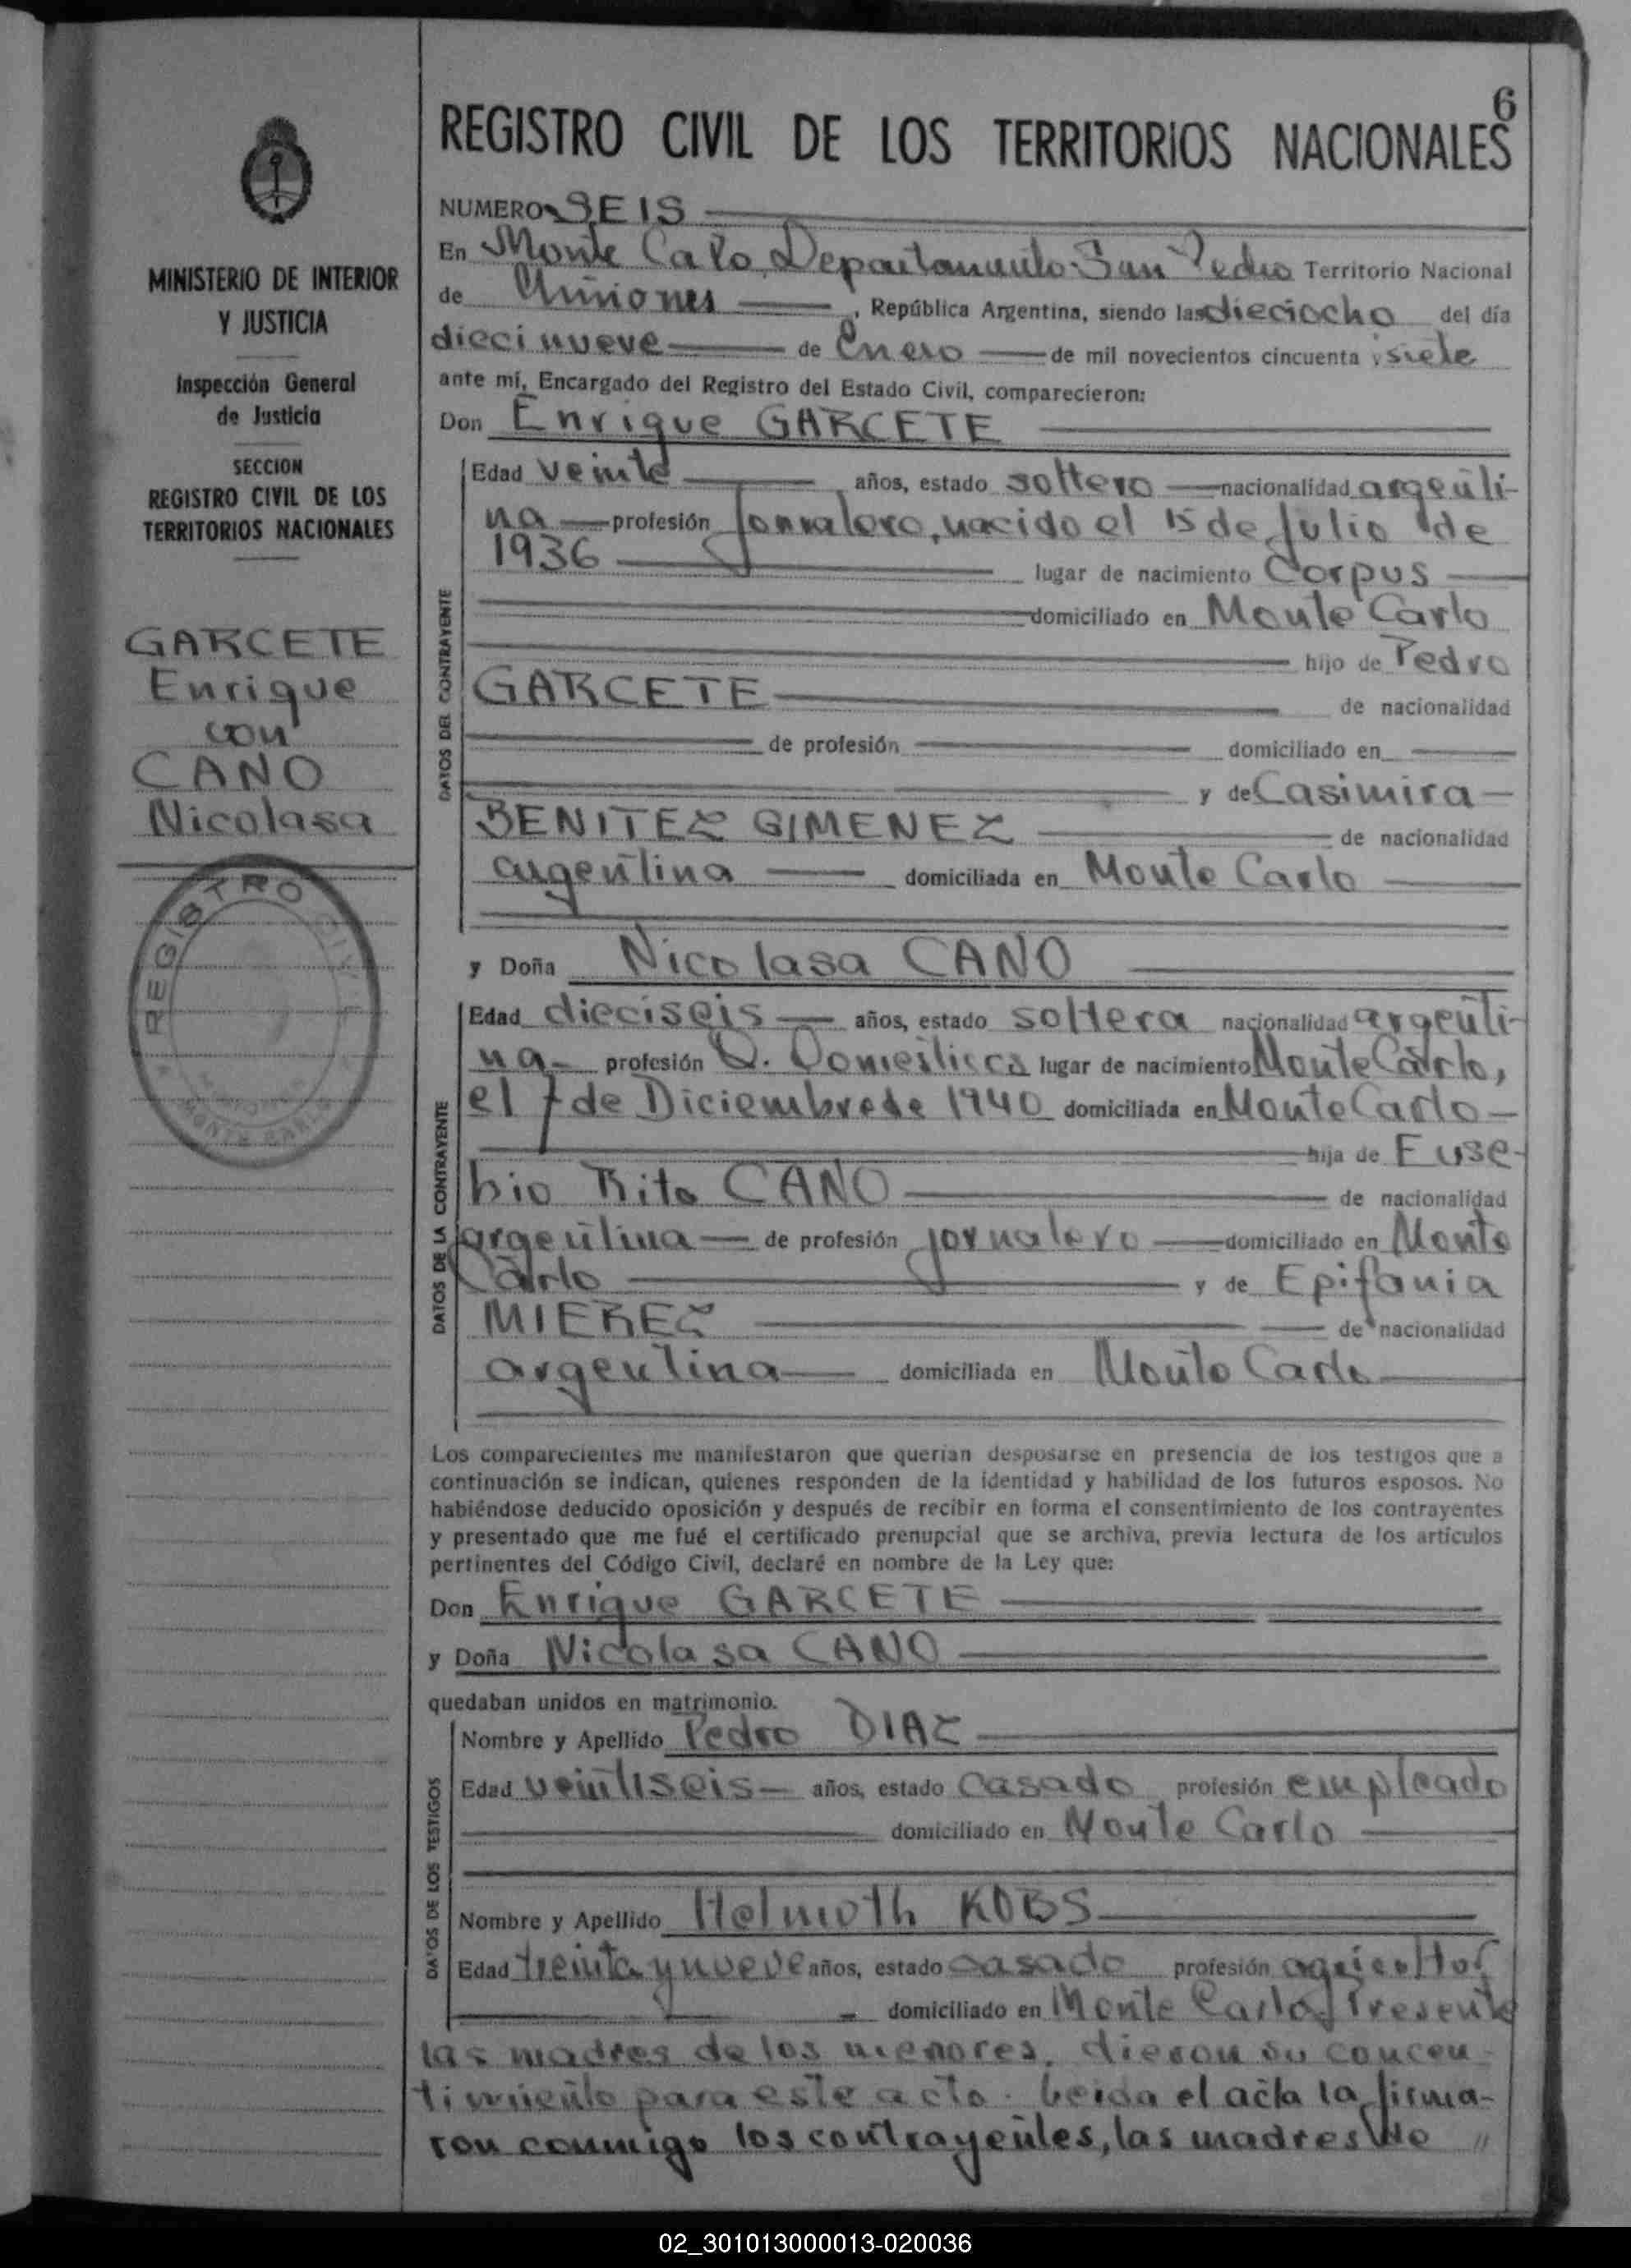 6
REGISTRO CIVIL DE LOS TERRITORIOS NACIONALES
MINISTERIO DE INTERIOR
Y JUSTICIA
Inspección General
de Justicia
SECCION
REGISTRO CIVIL DE LOS
TERRITORIOS NACIONALES
GARCETE
Enrique
con
CANO
Nicolasa
REGISTRO CIVIL
MONTE CARLO
NUMERO SEIS
En Monte Calo, Departamento San Pedro Territorio Nacional
de Misiones, República Argentina, siendo las dieciocho del día
diecinueve de Enero de mil novecientos cincuenta y siete
ante mí, Encargado del Registro del Estado Civil, comparecieron:
Don Enrique GARCETE
DATOS DEL CONTRAYENTE
Edad veinte años, estado soltero nacionalidad argenti-
na profesión Jornalero, nacido el 15 de Julio de
1936 lugar de nacimiento Corpus
domiciliado en Monte Carlo
hijo de Pedro
GARCETE de nacionalidad
de profesión domiciliado en
y de Casimira
BENITEZ GIMENEZ de nacionalidad
argentina domiciliada en Monte Carlo
y Doña Nicolasa CANO
DATOS DE LA CONTRAYENTE
Edad dieciseis años, estado soltera nacionalidad argenti-
na profesión Q. Domesticos lugar de nacimiento Monte Carlo,
el 7 de Diciembre de 1940 domiciliada en Monte Carlo
hija de Euse-
bio Rito CANO de nacionalidad
argentina de profesión jornalero domiciliado en Monte
Carlo y de Epifania
MIEREZ de nacionalidad
argentina domiciliada en Monte Carlo
Los comparecientes me manifestaron que querían desposarse en presencia de los testigos que a
continuación se indican, quienes responden de la identidad y habilidad de los futuros esposos. No
habiéndose deducido oposición y después de recibir en forma el consentimiento de los contrayentes
y presentado que me fué el certificado prenupcial que se archiva, previa lectura de los artículos
pertinentes del Código Civil, declaré en nombre de la Ley que:
Don Enrique GARCETE
y Doña Nicolasa CANO
quedaban unidos en matrimonio.
DATOS DE LOS TESTIGOS
Nombre y Apellido Pedro DIAZ
Edad veintiseis años, estado casado profesión empleado
domiciliado en Monte Carlo
Nombre y Apellido Helmoth KOBS
Edad treinta y nueve años, estado casado profesión agricultor
domiciliado en Monte Carlo. Presente
las madres de los menores, dieron su concen-
timiento para este acto. Leida el acta la firma-
ron conmigo los contrayentes, las madres de "
02_301013000013-020036